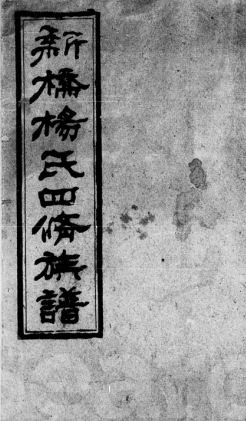 新橋楊氏四脩族譜